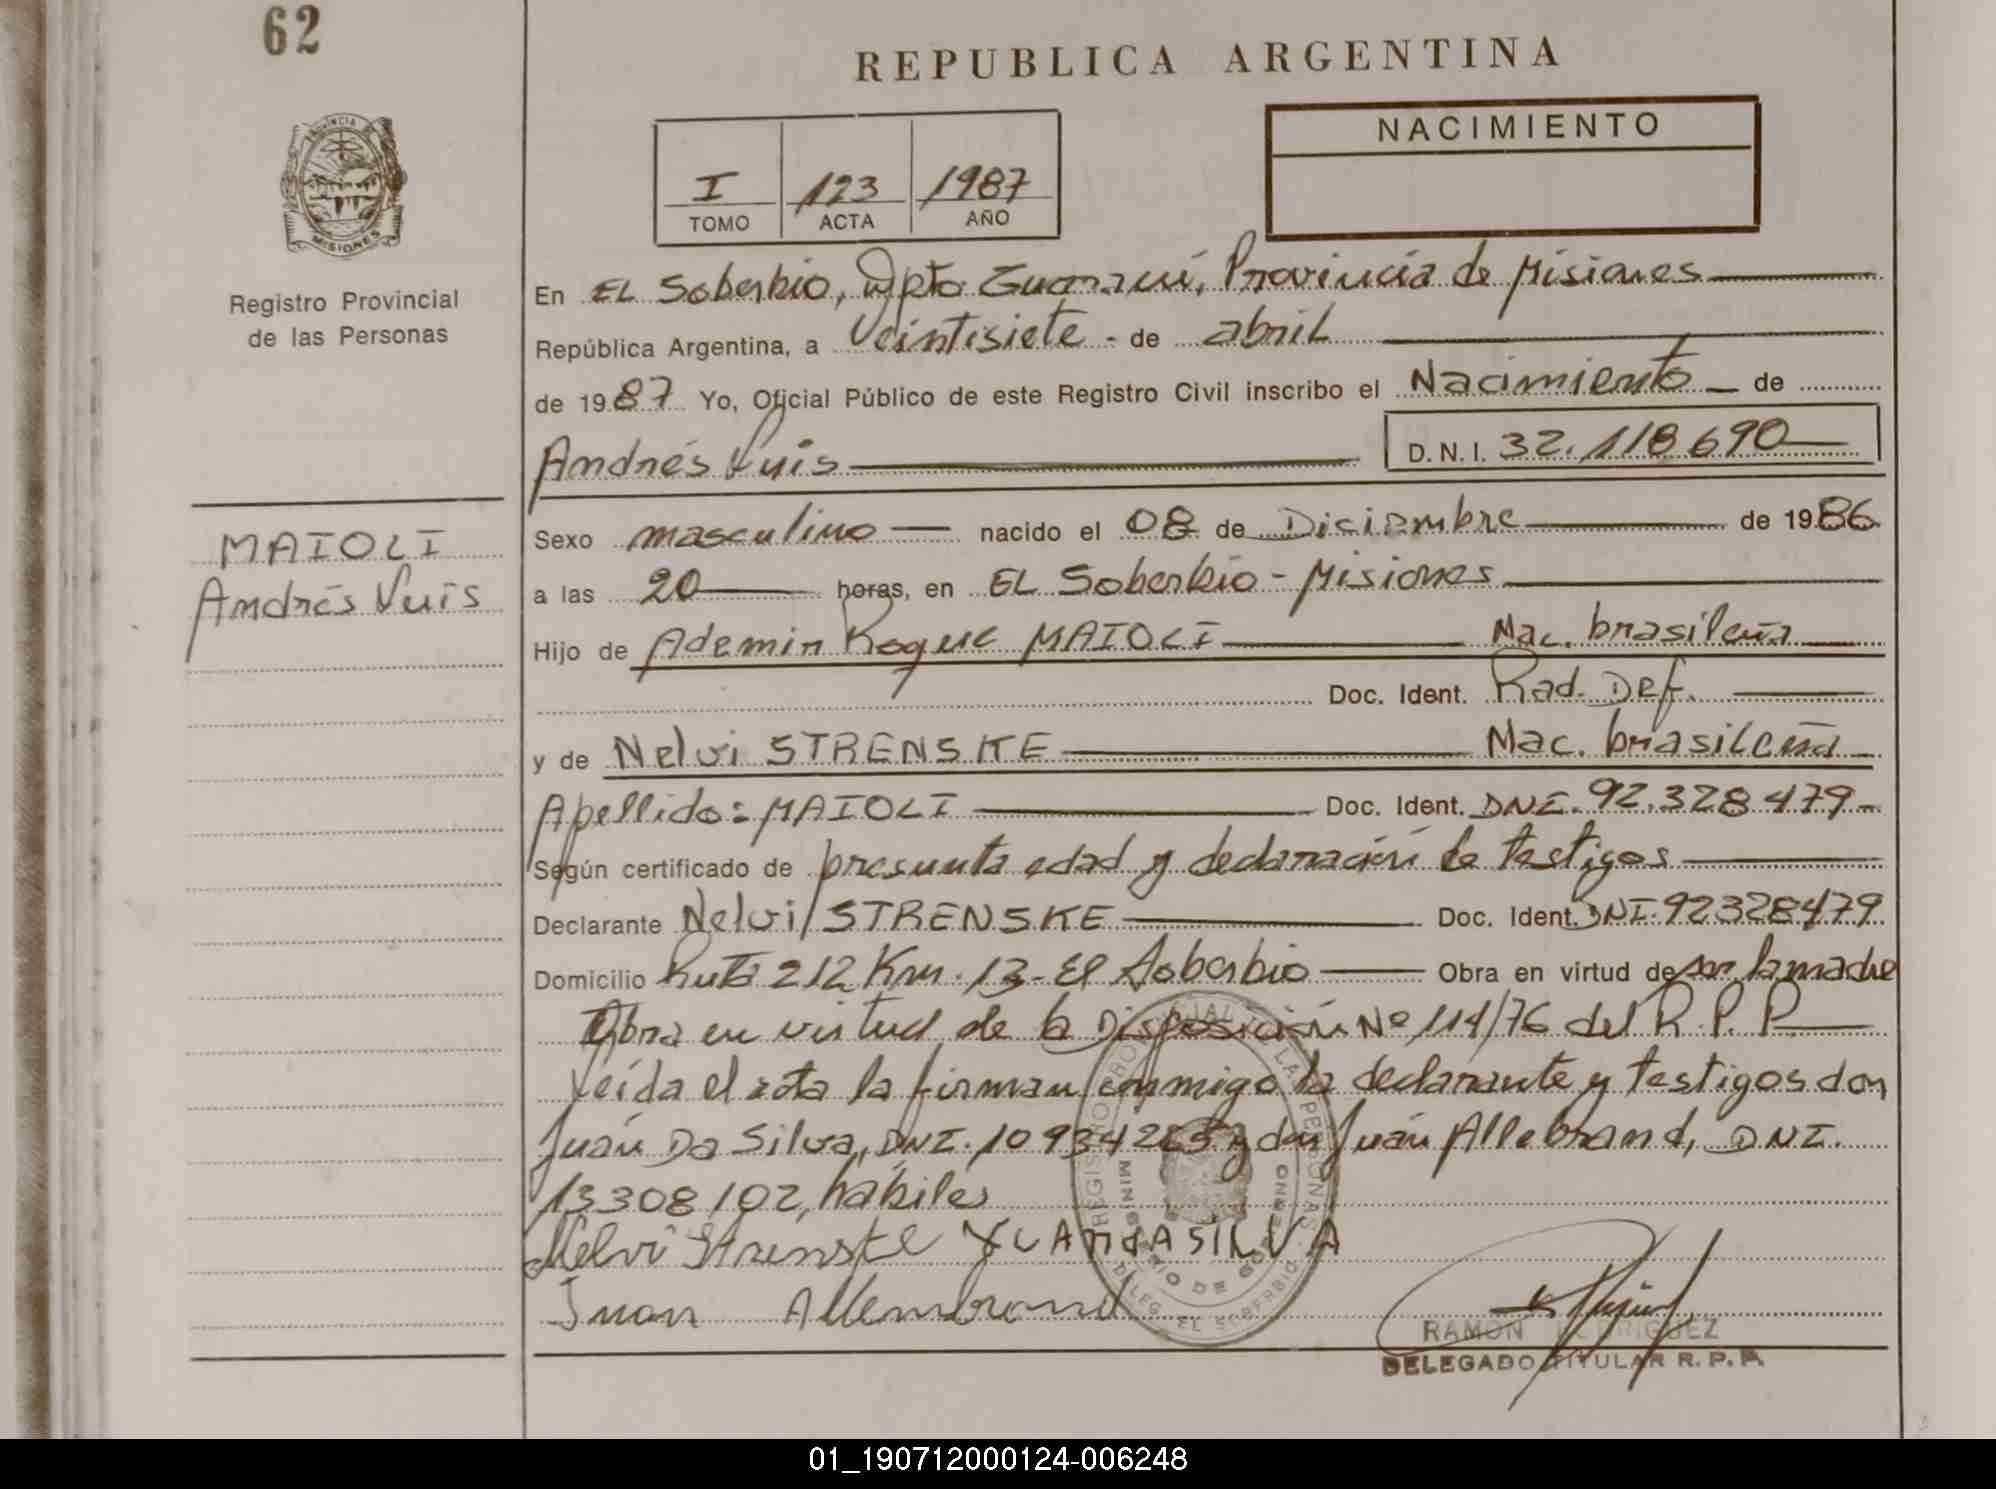 62
REPUBLICA ARGENTINA
PROVINCIA DE MISIONES
Registro Provincial
de las Personas
I 123 1987
TOMO ACTA AÑO
NACIMIENTO
En EL Soberbio, Dpto Guaraní, Provincia de Misiones
República Argentina, a Veintisiete - de abril
de 1987 Yo, Oficial Público de este Registro Civil inscribo el Nacimiento de
Andrés Luis D.N.I. 32.118.690
MAIOLI
Andrés Luis
Sexo masculino nacido el 08 de Diciembre de 1986
a las 20 horas, en EL Soberbio - Misiones
Hijo de Ademir Roque MAIOLI Nac. brasileña
Doc. Ident. Rad. Def.
y de Nelvi STRENSKE Nac. brasileña
Apellido: MAIOLI Doc. Ident. DNI. 92.328479
Según certificado de presunta edad y declaración de testigos
Declarante Nelvi STRENSKE Doc. Ident. DNI. 92328479
Domicilio Ruta 212 Km. 13 - El Soberbio Obra en virtud de ser la madre
Obra en virtud de la Disposición Nº 114/76 del R. P. P.
Leída el acta la firman conmigo la declarante y testigos don
Juan Da Silva, DNI. 10934265 y don Juan Allebrand, DNI.
13308102, hábiles
Nelvi Strenske JUAN DA SILVA
Juan Allembrand
REGISTRO PROVINCIAL DE LAS PERSONAS
MINISTERIO DE GOBIERNO
DELEG. EL SOBERBIO
RAMON RODRIGUEZ
DELEGADO TITULAR R. P. P.
01_190712000124-006248